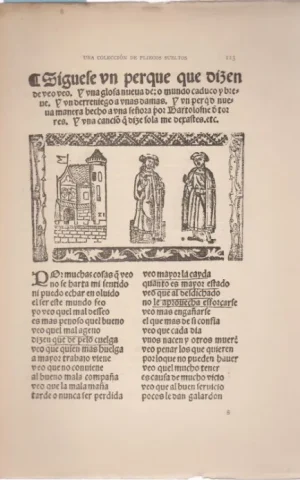 UNA COLECCIÓN DE PLIEGOS SUELTOS 113
¶Siguese vn perque que dizen
de veo veo. Y vna glosa nueua de: o mundo caduco y bre-
ue. Y vn derreniego a vnas damas. Y vn perq̃ de nue-
ua manera hecho a vna señora por Bartolome d̃ tor
res. Y vna canciõ q̃ dize sola me dexastes. etc.
POr muchas cosas q̃ veo
no se harta mi sentido
ni puedo echar en oluido
el ser este mundo feo
yo veo quel mal desseo
es mas penoso quel bueno
veo quel mal ageno
dizen que de pelo cuelga
veo que quien mas huelga
a mayor trabajo viene
veo que no conuiene
al bueno mala compaña
veo que la mala maña
tarde o nunca ser perdida
veo mayor la cayda
quanto es mayor estado
veo que al desdichado
no le aprouecha esforçarse
veo mas engañarse
el que mas de si confia
veo que cada dia
vnos nacen y otros muerẽ
veo penar los que quieren
por lo que no pueden hauer
veo quel mucho tener
es causa de mucho vicio
veo que al buen seruicio
pocos le dan galardon